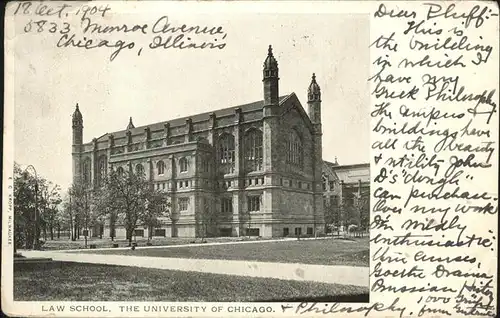 18 Oct. 1904
5833 Monroe Avenue,
Chicago, Illinois
Dear Pfluff:
This is the
building in
which I
have my
Greek Philosophy
The campus &
buildings have
all the beauty
& utility John
D's "dough"
can purchase.
love my work
Am wildly
enthusiastic.
Courses,
Goethe Drama
Prussian
& Philosophy.
LAW SCHOOL. THE UNIVERSITY OF CHICAGO.
E. C. KROPP, MILWAUKEE